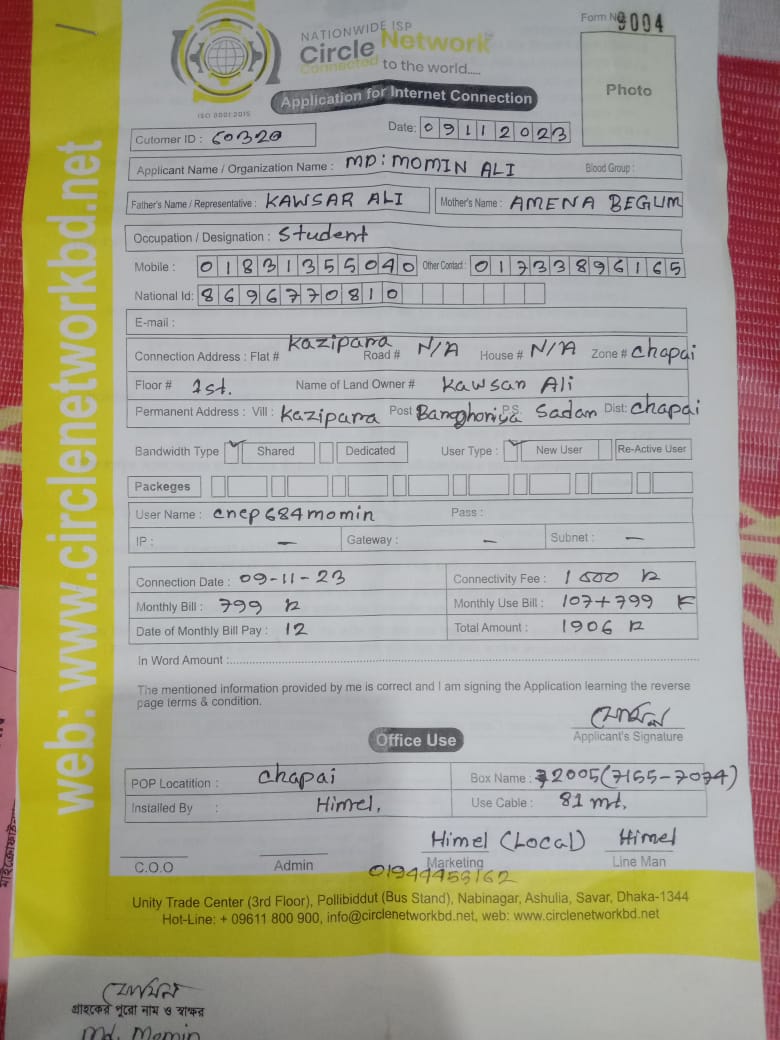 NATIONWIDE ISP
Circle Network
Connected to the world.....
ISO 9001:2015
Form No 9004
Photo
Application for Internet Connection
Cutomer ID : 60320
Date: 09112023
Applicant Name / Organization Name : MD: MOMIN ALI Blood Group :
Father's Name / Representative : KAWSAR ALI Mother's Name : AMENA BEGUM
Occupation / Designation : Student
Mobile : 01831355040 Other Contact : 01733896165
National Id: 8696770810
E-mail :
Connection Address : Flat # Kazipara Road # N/A House # N/A Zone # Chapai
Floor # 1st. Name of Land Owner # Kawsar Ali
Permanent Address : Vill : Kazipara Post Baroghoriya P.S Sadar Dist: Chapai
Bandwidth Type ✓ Shared Dedicated User Type : ✓ New User Re-Active User
Packeges
User Name : cnep684momin Pass :
IP : – Gateway : – Subnet : –
Connection Date : 09-11-23 Connectivity Fee : 1000
Monthly Bill : 799 Monthly Use Bill : 107+799
Date of Monthly Bill Pay : 12 Total Amount : 1906
In Word Amount :
The mentioned information provided by me is correct and I am signing the Application learning the reverse
page terms & condition.
Applicant's Signature
Office Use
POP Locatition : Chapai Box Name : 2005(7155-7074)
Installed By : Himel. Use Cable : 81 mt.
Himel (Local) Himel
C.O.O Admin Marketing Line Man
01944453162
Unity Trade Center (3rd Floor), Pollibiddut (Bus Stand), Nabinagar, Ashulia, Savar, Dhaka-1344
Hot-Line: + 09611 800 900, info@circlenetworkbd.net, web: www.circlenetworkbd.net
web: www.circlenetworkbd.net
মোমিন
গ্রাহকের পুরো নাম ও স্বাক্ষর
Md. Momin